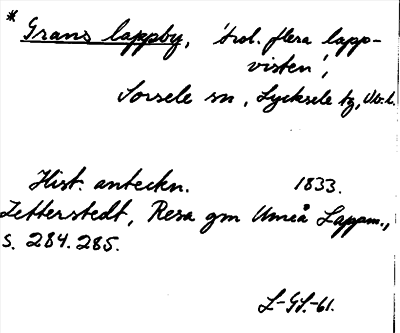 * Grans lappby, 'trol. flera lapp-
visten',
Sorsele sn, Lycksele tg, Vb.l.
Hist. anteckn. 1833.
Zetterstedt, Resa gm Umeå Lappm.,
s. 284.285.
L-GS.-61.